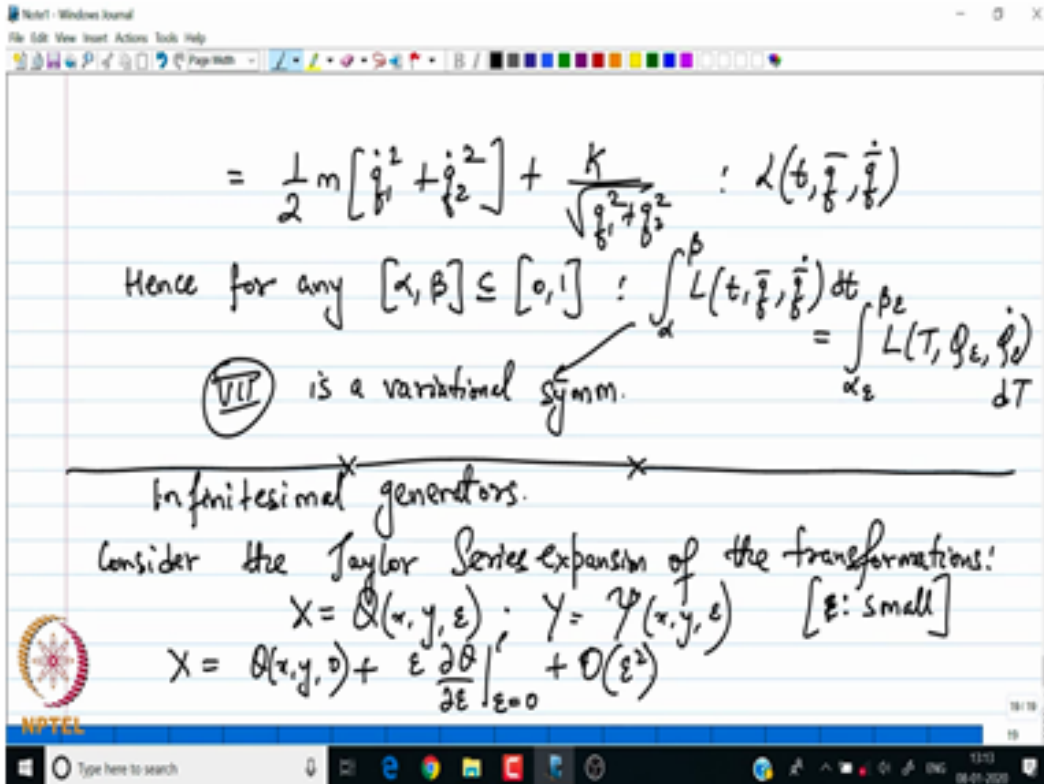 Note1 - Windows Journal
File Edit View Insert Actions Tools Help
Page Width
B I
= 1/2 m [q̇₁² + q̇₂²] + K/√(q₁² + q₂²) : L(t, q̄, q̄̇)
Hence for any [α, β] ⊆ [0, 1] : ∫_α^β L(t, q̄, q̄̇) dt
= ∫_{α_ε}^{β_ε} L(T, Q_ε, Q̇_ε) dT
VII is a variational symm.
Infinitesimal generators.
Consider the Taylor Series expansion of the transformations:
X = θ(x, y, ε) ; Y = Ψ(x, y, ε) [ε: small]
X = θ(x, y, 0) + ε ∂θ/∂ε |_{ε=0} + O(ε²)
NPTEL
19/19
19
Type here to search
ENG
13:13
08-01-2020